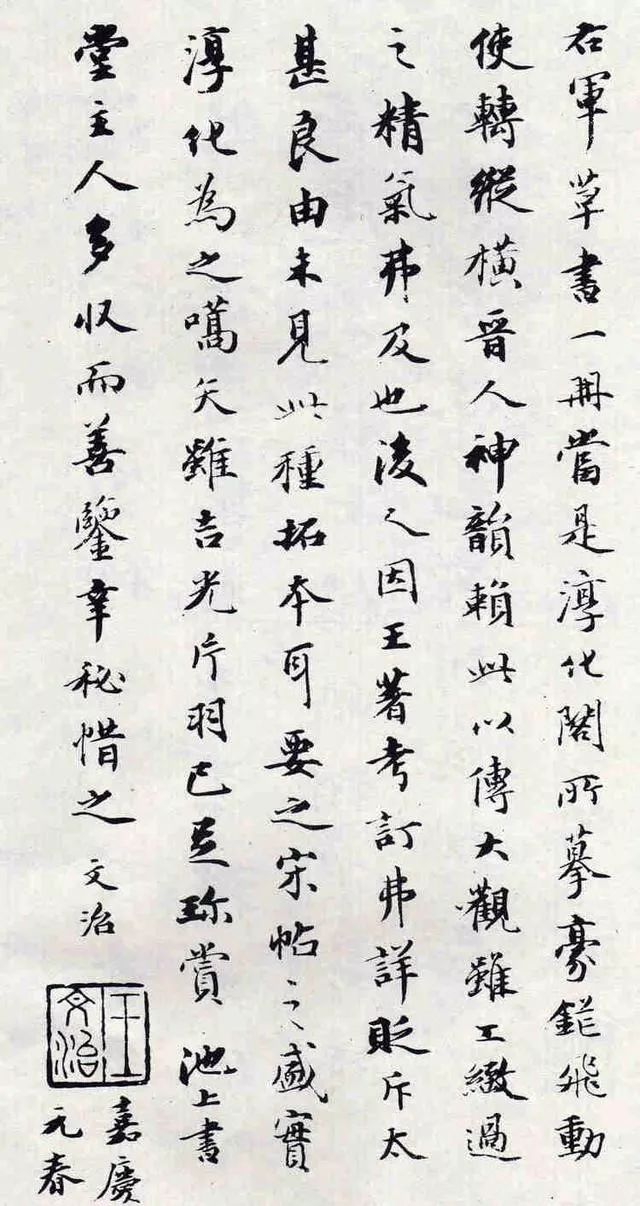 右軍草書一冊當是淳化閣所摹豪鋩飛動
使轉縱橫晋人神韻賴此以傳大觀雖工緻過
之精氣弗及也後之因王著考訂弗詳貶斥太
甚良由未見此種拓本耳要之宋帖之盛實
淳化為之嚆矢雖吉光片羽已足珎賞 池上書
堂主人多収而善鑒幸秘惜之 文治
王文治
嘉慶
元春